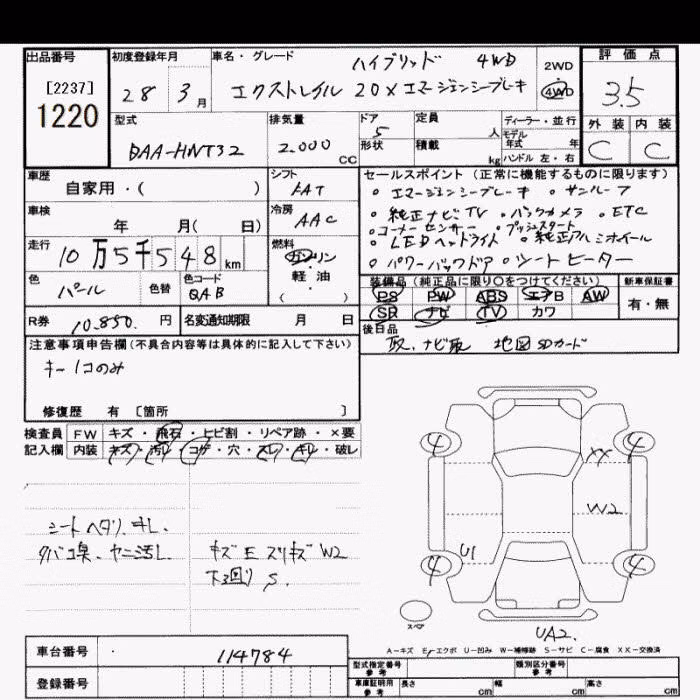 出品番号 初度登録年月 車名・グレード ハイブリッド 4WD 2WD 評価点
[2237] 28 3月 エクストレイル 20X エマージェンシーブレーキ 4WD 3.5
1220
型式 排気量 ドア 定員 ディーラー・並行 外装 内装
DAA-HNT32 2.000 CC 5 人 モデル年式 年 C C
形状 積載 kg ハンドル 左・右
車歴 シフト セールスポイント(正常に機能するものに限ります)
自家用・( ) FAT 。エマージェンシーブレーキ 。サンルーフ
車検 冷房 。純正ナビTV 。バックカメラ 。ETC
年 月( 日) AAC 。コーナーセンサー 。プッシュスタート
走行 燃料 。LEDヘッドライト 。純正アルミホイール
10万5千548km ガソリン 。パワーバックドア 。シートヒーター
色 色替 色コード 軽・油 装備品(純正品に限り〇をつけてください) 新車保証書
パール QAB ( ) PS PW ABS エアB AW 有・無
SR ナビ TV カワ
R券 10.850.円 名変通知期限 月 日 後日品
取、ナビ取 地図SDカード
注意事項申告欄(不具合内容等は具体的に記入して下さい)
キー1コのみ
修復歴 有 [箇所 ]
検査員 FW キズ・飛石・ヒビ割・リペア跡・×要
記入欄 内装 キズ・汚レ・コゲ・穴・スレ・キレ・破レ
4 4
XX
W2
シートヘタリ、キレ、
タバコ臭、ヤニ汚レ キズE スリキズW2
下回りS.
U1
4 4
スペア
UA2.
A-キズ E-エクボ U-凹み W-補修跡 S-サビ C-腐食 XX-交換済
車台番号 114784
型式指定番号 参考 類別区分番号 参考
登録番号 車庫証明用 参考 長さ cm 幅 cm 高さ cm